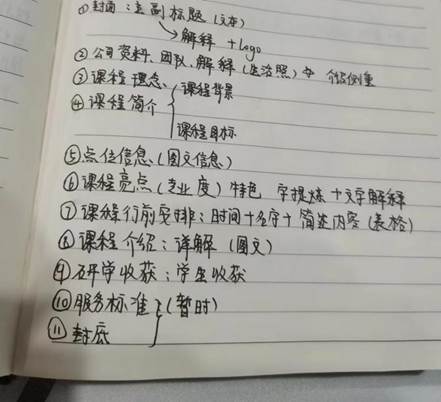 ①封面：主副标题（文本）
→解释 +logo
②公司资料、团队、解释（生活照）
③课程理念、课程背景
④课程简介
课程目标
⑤点位信息（图文信息）
⑥课程亮点（专业度）特色 字提炼+文字解释
⑦课程行前安排：时间+名字+简述内容（表格）
⑧课程介绍：详解（图文）
⑨研学收获：学生收获
⑩服务标准（暂时）
⑪封底